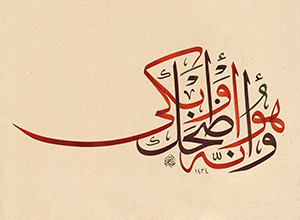 وَأَنَّهُ هُوَ أَضْحَكَ وَأَبْكَى
١٤٣٤